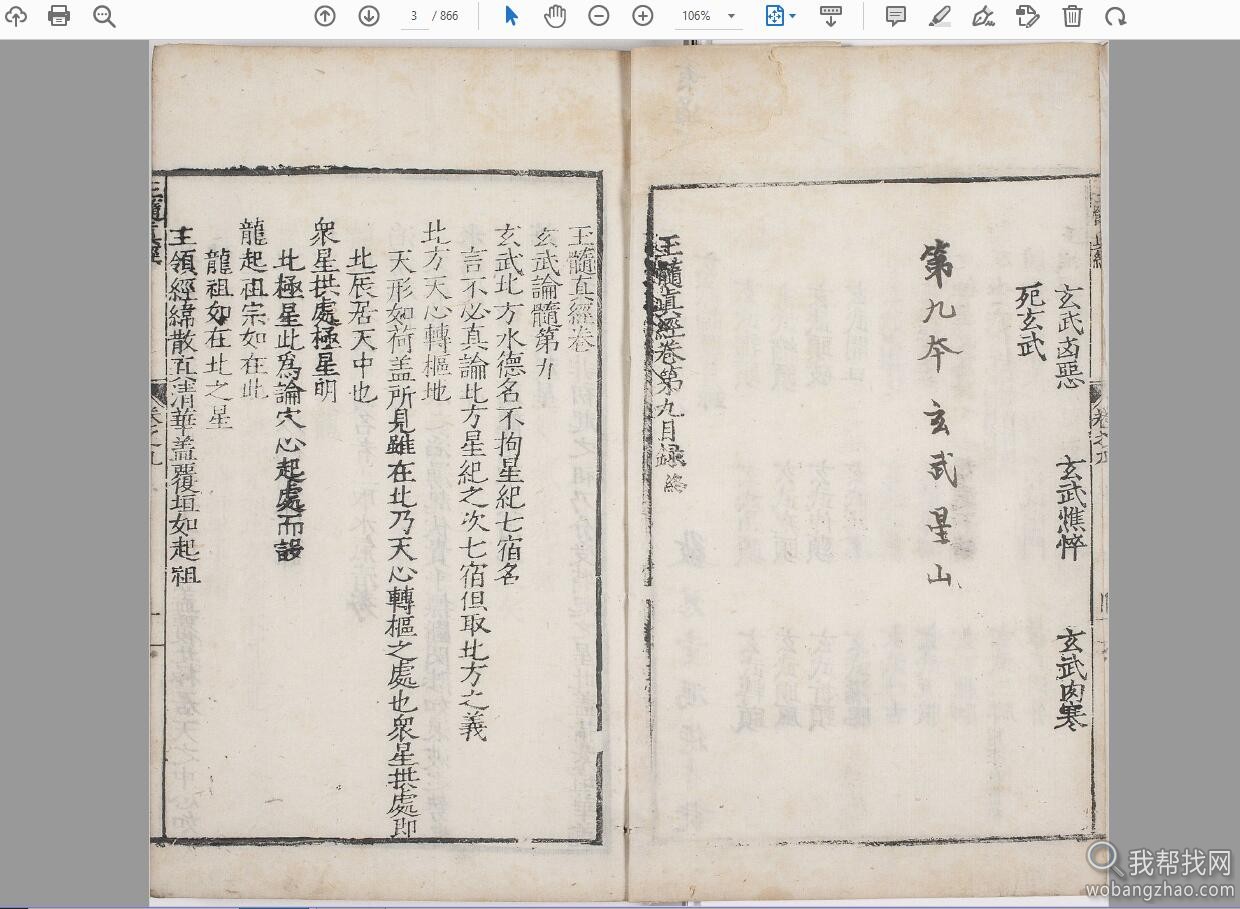 3 / 866
106%
玄武卤惡　玄武憔悴　玄武肉寒
死玄武
第九本　玄武星山
玉髓眞經卷第九目録終
玉髓真經卷
玄武論髓第九
玄武北方水德名不拘星紀七宿名
言不必真論北方星紀之次七宿但取北方之義
北方天心轉樞地
天形如荷盖所見雖在北乃天心轉樞之處也衆星拱處即
北辰居天中也
衆星拱處極星明
北極星此爲論穴心起處而設
龍起祖宗如在此
龍祖如在北之星
主領經緯散真清華盖覆垣如起祖
我帮找网
wobangzhao.com